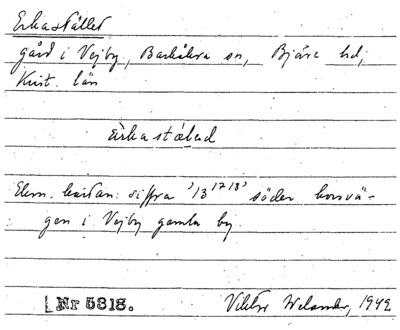 Erkastället
gård i Vejby, Barkåkra sn, Bjäre hd,
Krist. län
ærkastælad
Ekon. kartan: siffra '13 17 18' söder korsvä-
gen i Vejby gamla by.
Nr 5818.
Viktor Welander, 1942